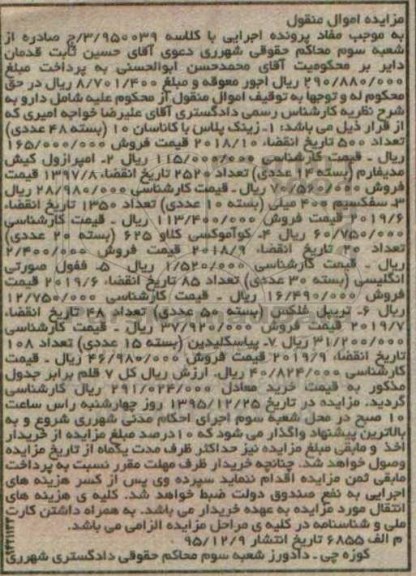 مزایده اموال منقول
به موجب مفاد پرونده اجرایی با کلاسه ۳/۹۵۰۰۳۹/ج صادره از
شعبه سوم محاکم حقوقی شهرری دعوی آقای حسین ثابت قدمان
دایر بر محکومیت آقای محمدحسن ابوالحسنی به پرداخت مبلغ
۲۹۰/۸۸۰/۰۰۰ ریال اجور معوقه و مبلغ ۸/۷۰۱/۴۰۰ ریال در حق
محکوم له و توجها به توقیف اموال منقول از محکوم علیه شامل دارو به
شرح نظریه کارشناس رسمی دادگستری آقای علیرضا خواجه امیری که
از قرار ذیل می باشد: ۱- زینک پلاس با کاناسان ۱۰ (بسته ۴۸ عددی)
تعداد ۵۰۰ تاریخ انقضاء ۲۰۱۸/۱۰ قیمت فروش ۱۶۵/۰۰۰/۰۰۰
ریال - قیمت کارشناسی ۱۱۵/۰۰۰/۰۰۰ ریال ۲- امپرازول کیش
مدیفارم (بسته ۱۴ عددی) تعداد ۲۵۲۰ تاریخ انقضاء ۱۳۹۷/۸ قیمت
فروش ۷۰/۵۶۰/۰۰۰ ریال - قیمت کارشناسی ۲۸/۹۸۰/۰۰۰ ریال
۳- سفکسیم ۴۰۰ میلی (بسته ۱۰ عددی) تعداد ۱۳۵۰ تاریخ انقضاء
۲۰۱۹/۶ قیمت فروش ۱۱۳/۴۰۰/۰۰۰ ریال - قیمت کارشناسی
۶۰/۷۵۰/۰۰۰ ریال ۴- کوآموکسی کلاو ۶۲۵ (بسته ۲۰ عددی)
تعداد ۲۰ تاریخ انقضاء ۲۰۱۸/۹ قیمت فروش ۲/۴۰۰/۰۰۰
ریال - قیمت کارشناسی ۱/۵۲۰/۰۰۰ ریال ۵- ففول صورتی
انگلیسی (بسته ۳۰ عددی) تعداد ۸۵ تاریخ انقضاء ۲۰۱۹/۶ قیمت
فروش ۱۶/۴۹۰/۰۰۰ ریال - قیمت کارشناسی ۱۲/۷۵۰/۰۰۰
ریال ۶- تریپل فلکس (بسته ۵۰ عددی) تعداد ۴۸ تاریخ انقضاء
۲۰۱۹/۷ قیمت فروش ۳۷/۹۲۰/۰۰۰ ریال - قیمت کارشناسی
۳۱/۲۰۰/۰۰۰ ریال ۷- پیاسکلیدین (بسته ۱۵ عددی) تعداد ۱۰۸
تاریخ انقضاء ۲۰۱۹/۹ قیمت فروش ۴۶/۹۸۰/۰۰۰ ریال - قیمت
کارشناسی ۴۰/۸۲۴/۰۰۰ ریال. ارزش ریال کل ۷ قلم برابر جدول
مذکور به قیمت خرید معادل ۲۹۱/۰۲۴/۰۰۰ ریال کارشناسی
گردید. مزایده در تاریخ ۱۳۹۵/۱۲/۲۵ روز چهارشنبه راس ساعت
۱۰ صبح در محل شعبه سوم اجرای احکام مدنی شهرری شروع و به
بالاترین پیشنهاد واگذار می شود که ۱۰درصد مبلغ مزایده از خریدار
اخذ و مابقی مبلغ مزایده نیز حداکثر ظرف مدت یکماه از تاریخ مزایده
وصول خواهد شد. چنانچه خریدار ظرف مهلت مقرر نسبت به پرداخت
مابقی ثمن مزایده اقدام ننماید سپرده وی پس از کسر هزینه های
اجرایی به نفع صندوق دولت ضبط خواهد شد. کلیه ی هزینه های
انتقال مورد مزایده به عهده خریدار می باشد. به همراه داشتن کارت
ملی و شناسنامه در کلیه ی مراحل مزایده الزامی می باشد.
م الف ۶۸۵۵ تاریخ انتشار ۹۵/۱۲/۹
کوزه چی - دادورز شعبه سوم محاکم حقوقی دادگستری شهرری